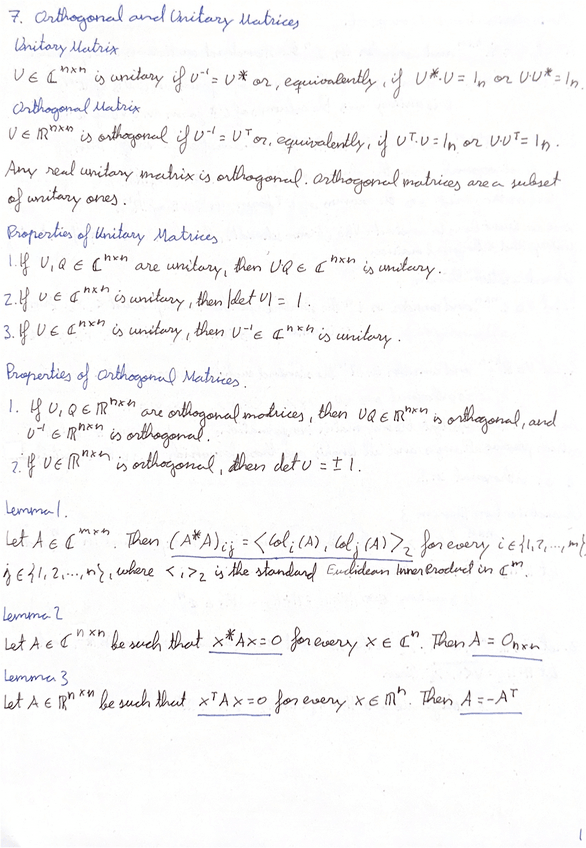 7. Orthogonal and Unitary Matrices
Unitary Matrix
U ∈ ℂⁿˣⁿ is unitary if U⁻¹ = U* or, equivalently, if U*·U = Iₙ or U·U* = Iₙ.
Orthogonal Matrix
U ∈ ℝⁿˣⁿ is orthogonal if U⁻¹ = Uᵀ or, equivalently, if Uᵀ·U = Iₙ or U·Uᵀ = Iₙ.
Any real unitary matrix is orthogonal. Orthogonal matrices are a subset
of unitary ones.
Properties of Unitary Matrices
1. If U, Q ∈ ℂⁿˣⁿ are unitary, then UQ ∈ ℂⁿˣⁿ is unitary.
2. If U ∈ ℂⁿˣⁿ is unitary, then |det U| = 1.
3. If U ∈ ℂⁿˣⁿ is unitary, then U⁻¹ ∈ ℂⁿˣⁿ is unitary.
Properties of Orthogonal Matrices.
1. If U, Q ∈ ℝⁿˣⁿ are orthogonal matrices, then UQ ∈ ℝⁿˣⁿ is orthogonal, and
U⁻¹ ∈ ℝⁿˣⁿ is orthogonal.
2. If U ∈ ℝⁿˣⁿ is orthogonal, then det U = ± 1.
Lemma 1.
Let A ∈ ℂᵐˣⁿ. Then (A*A)ᵢⱼ = <Colᵢ(A), Colⱼ(A)>₂ for every i ∈ {1,2,...,m},
j ∈ {1,2,...,n}, where < , >₂ is the standard Euclidean Inner Product in ℂᵐ.
Lemma 2
Let A ∈ ℂⁿˣⁿ be such that x*Ax = 0 for every x ∈ ℂⁿ. Then A = 0ₙₓₙ
Lemma 3
Let A ∈ ℝⁿˣⁿ be such that xᵀAx = 0 for every x ∈ ℝⁿ. Then A = -Aᵀ
1